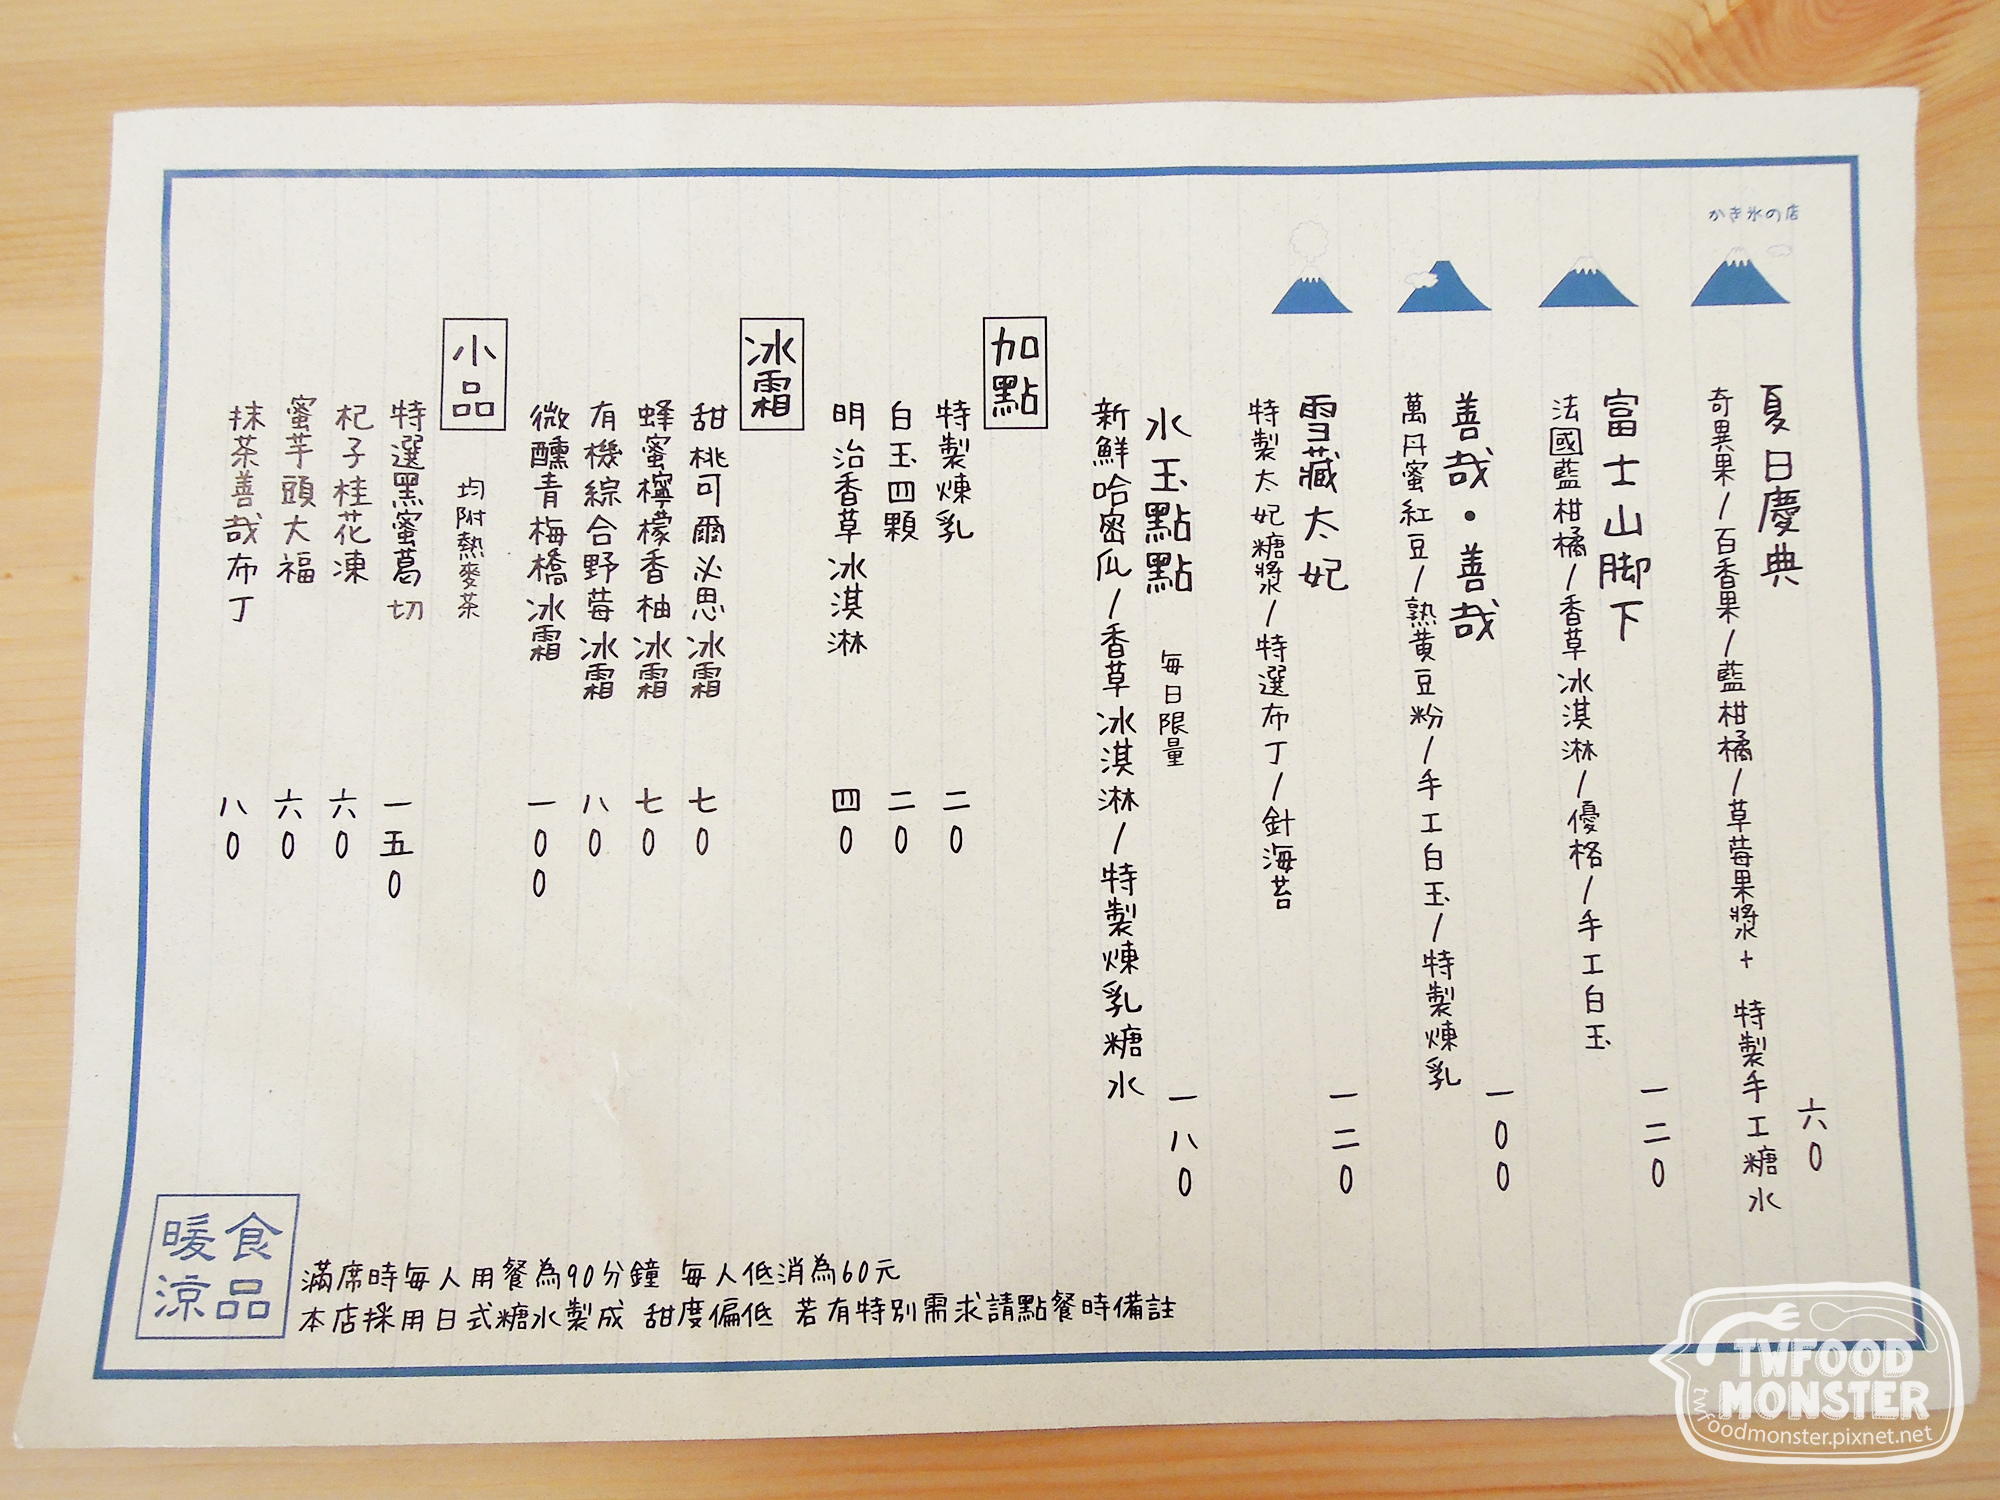 かき氷の店
夏日慶典
奇異果/百香果/藍柑橘/草莓果漿+ 特製手工糖水
六0
富士山脚下
法國藍柑橘/香草冰淇淋/優格/手工白玉
一二0
善哉・善哉
萬丹蜜紅豆/熟黄豆粉/手工白玉/特製煉乳
一00
雪藏太妃
特製太妃糖漿/特選布丁/針海苔
一二0
水玉點點 每日限量
新鮮哈密瓜/香草冰淇淋/特製煉乳糖水
一八0
加點
特製煉乳 二0
白玉四顆 二0
明治香草冰淇淋 四0
冰霜
甜桃可爾必思冰霜 七0
蜂蜜檸檬香柚冰霜 七0
有機綜合野莓冰霜 八0
微醺青梅橋冰霜 一00
小品 均附熱麥茶
特選黑蜜葛切 一五0
杞子桂花凍 六0
蜜芋頭大福 六0
抹茶善哉布丁 八0
食品
暖涼
滿席時每人用餐為90分鐘 每人低消為60元
本店採用日式糖水製成 甜度偏低 若有特別需求請點餐時備註
TWFOOD
MONSTER
twfoodmonster.pixnet.net